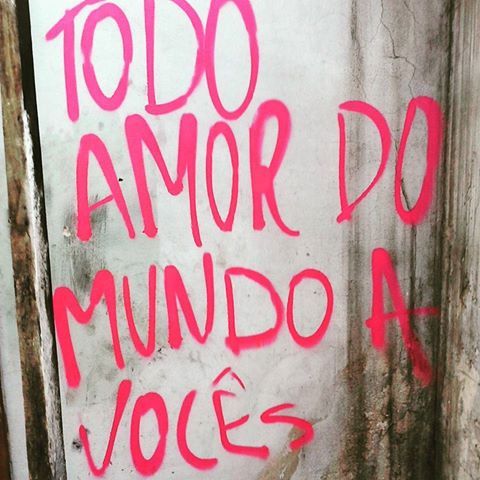 TODO
AMOR DO
MUNDO A
VOCÊS